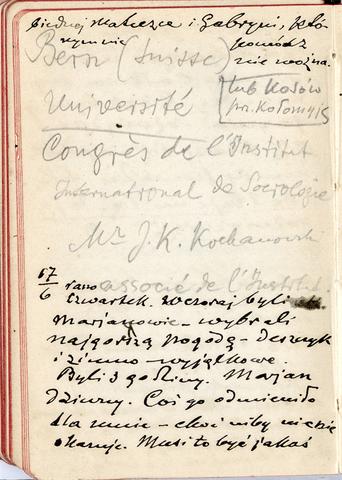 biednej Mateczce i Gabryni, któ-
rym nie pomódz
nie można.
Bern (Suisse)
lub Kosów
pr. Kołomyis
Université
Congrès de l'Institut
International de Sociologie
Mr J. K. Kochanowski
associé de l'Institut.
17/6 rano
Czwartek. Wczoraj byli
Marjanowie – wybrali
najgorszą pogodę – deszczyk
i zimno wyjątkowe.
Byli 3 godziny. Marjan
dziwny. Coś go odmieniło
dla mnie – choć niby nie
okazuje. Musi to być jakaś